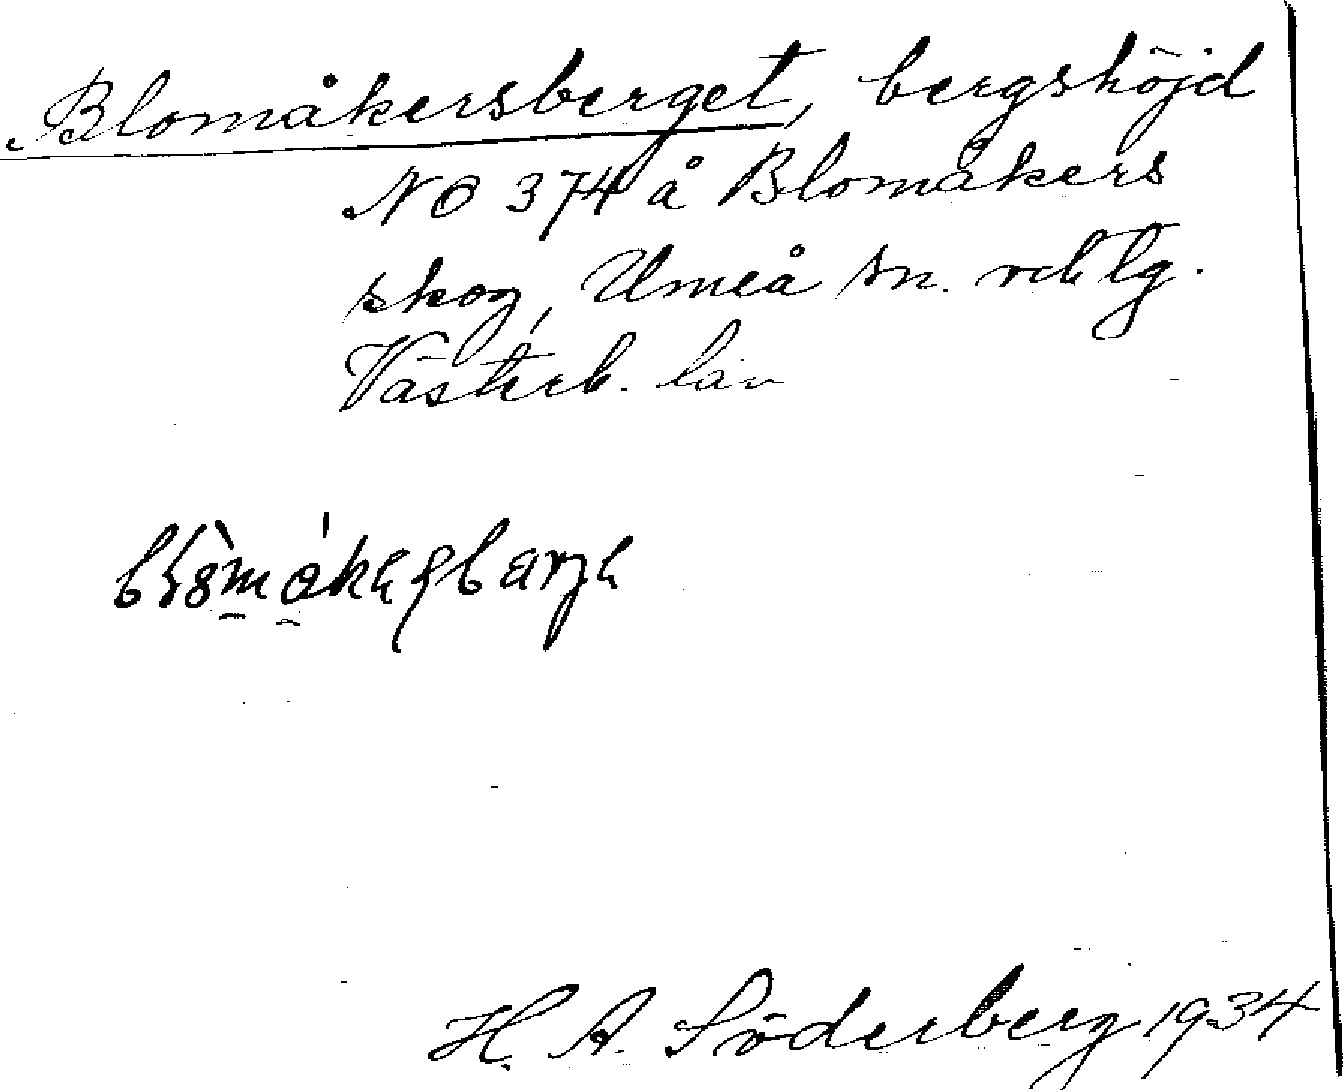 Blomåkersberget, bergshöjd
NO 374 å Blomåkers
skog, Umeå sn. o. tlg.
Västerb. län
H. A. Söderberg 1934